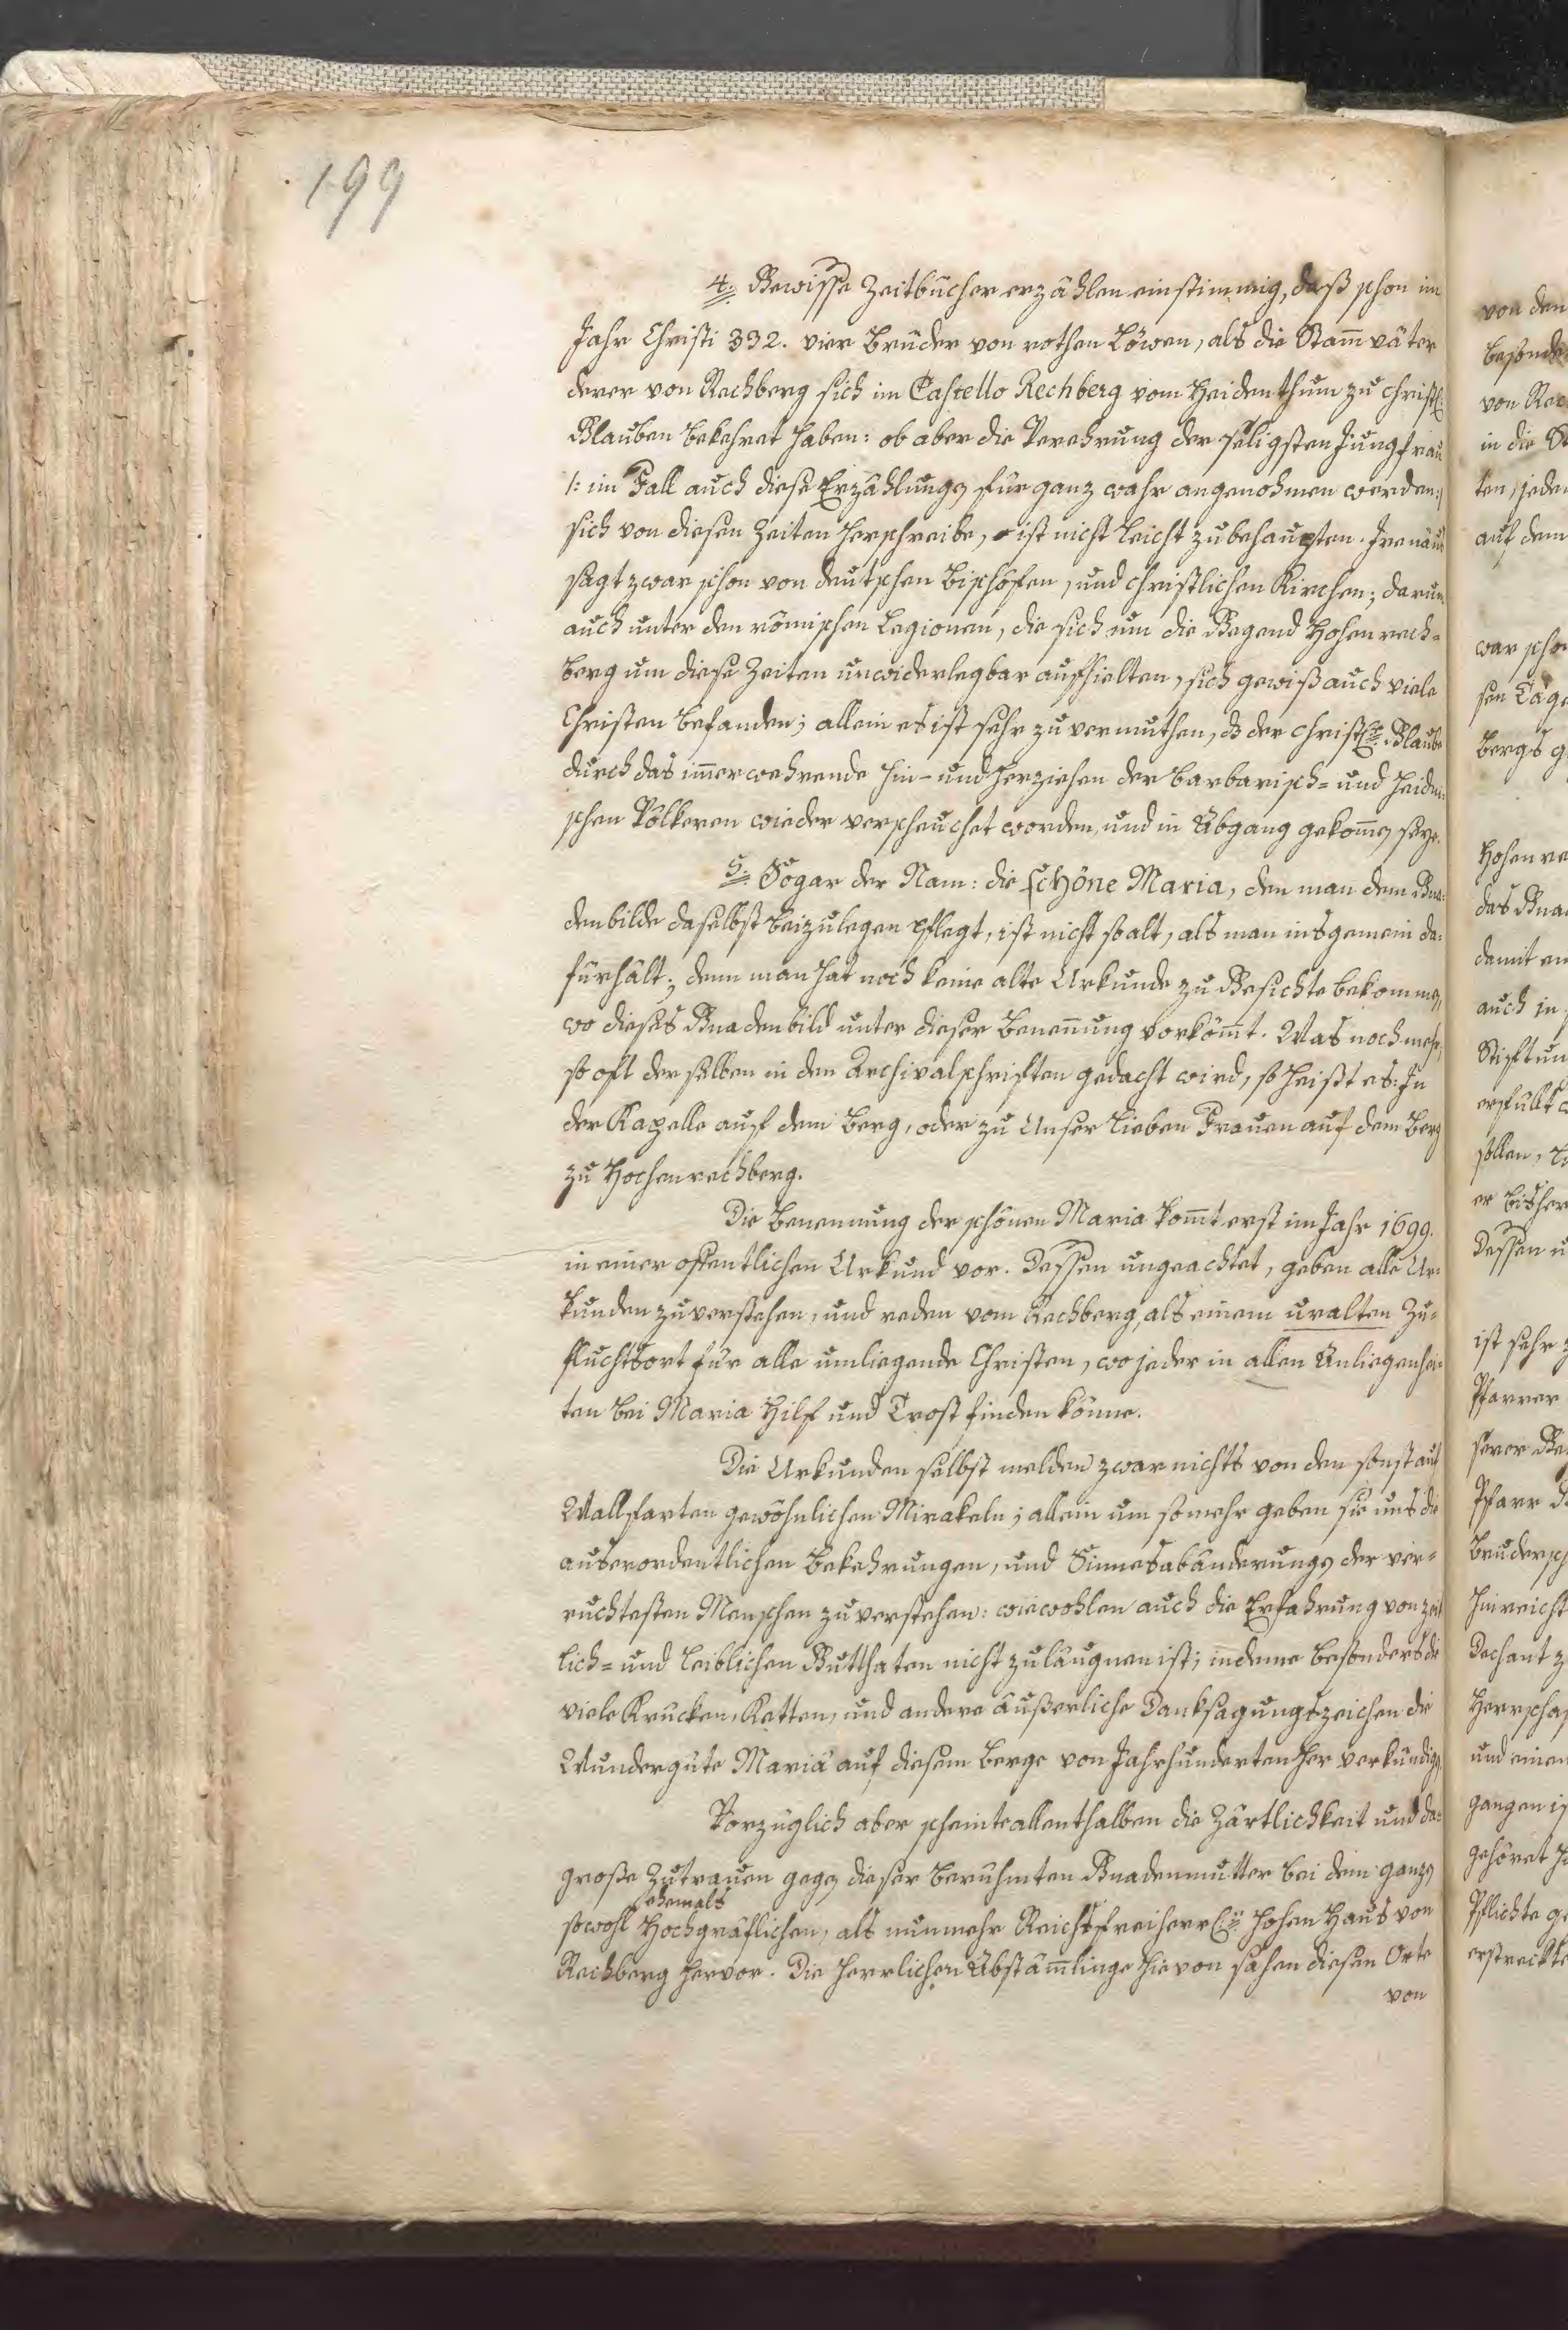 199
4. Gewisse Zeitbücher erzählen einstimmig, daß schon im
Jahr Christi 332. vier Brüder von rothen Löwen, als die Stam̄väter
derer von Rechberg sich im Castello Rechberg vom Heidenthum zu christl:
Glauben bekehret haben: ob aber die Verehrung der seligsten Jungfrau
/: im Fall auch diese Erzählung für ganz wahr angenohmen werden :/
sich von diesen Zeiten herschreibe, ist nicht leicht zu behaupten. Irenäus
sagt zwar schon von deutschen Bischöfen, und christlichen Kirchen; darum
auch unter den römischen Legionen, die sich um die Gegend Hohenrech-
berg um diese Zeiten unwiderlegbar aufhielten, sich gewiß auch viele
Christen befanden; allein es ist sehr zu vermuthen, dz der christl: Glaube
durch das im̄erwehrende hin- und herziehen der barbarisch- und heidni-
schen Völkeren wieder verscheuchet worden, und in Abgang gekom̄en seye.
5. Sogar der Nam: die schöne Maria, den man dem Gna-
denbilde daselbst beizulegen pflegt, ist nicht so alt, als man insgemein da-
fürhält; denn man hat noch keine alte Urkunde zu Gesichte bekommen,
wo dieses Gnadenbild unter dieser Benen̄ung vorköm̄t. Was noch mehr,
so oft derselben in den Archivalschriften gedacht wird, so heißt es: In
der Kapelle auf dem Berg, oder zu Unser lieben Frauen auf dem Berg
zu Hochenrechberg.
Die Benennung der schönen Maria kom̄t erst im Jahr 1699.
in einer offentlichen Urkund vor. Dessen ungeachtet, geben alle Ur-
kunden zu verstehen, und reden vom Rechberg, als einem uralten Zu-
fluchtsort für alle umliegende Christen, wo jeder in allen Anliegenhei-
ten bei Maria Hilf und Trost finden könne.
Die Urkunden selbst melden zwar nichts von den sonst auf
Wallfarten gewöhnlichen Mirakeln; allein um so mehr geben sie uns die
auserordentlichen Bekehrungen, und Sinnesabänderungen der ver-
ruchtesten Menschen zu verstehen: wiewohlen auch die Erfahrung von zeit
lich- und leiblichen Gutthaten nicht zu läugnen ist; indeme besonders die
viele Krucken, Ketten, und andere äußerliche Danksagungszeichen die
Wundergüte Mariä auf diesem Berge von Jahrhunderten her verkündigen.
Vorzüglich aber scheinte allenthalben die Zärtlichkeit und das
große Zutrauen gegen dieser berühmten Gnadenmutter bei dem ganzen
ehemals
sowohl Hochgräflichen, als nunmehr Reichsfreiherrl: hohen Haus von
Rechberg hervor. Die herrlichen Abstäm̄linge hievon sahen diesen Orte
von
von den
besonde
von Rec
in die St
ten, jeder
auf dem
war scho
sen Tage
Bergs g
Hohenre
das Gna
damit
auch in
Stiftun
erfüllt
sollen,
er bisher
Dessen u
ist sehr z
Pfarrer
Pfarr
Brudersch
hinreicht
Dechant z
Herrschaf
und einen
gangen is
gehöret h
Pflichte ge
erstreckte